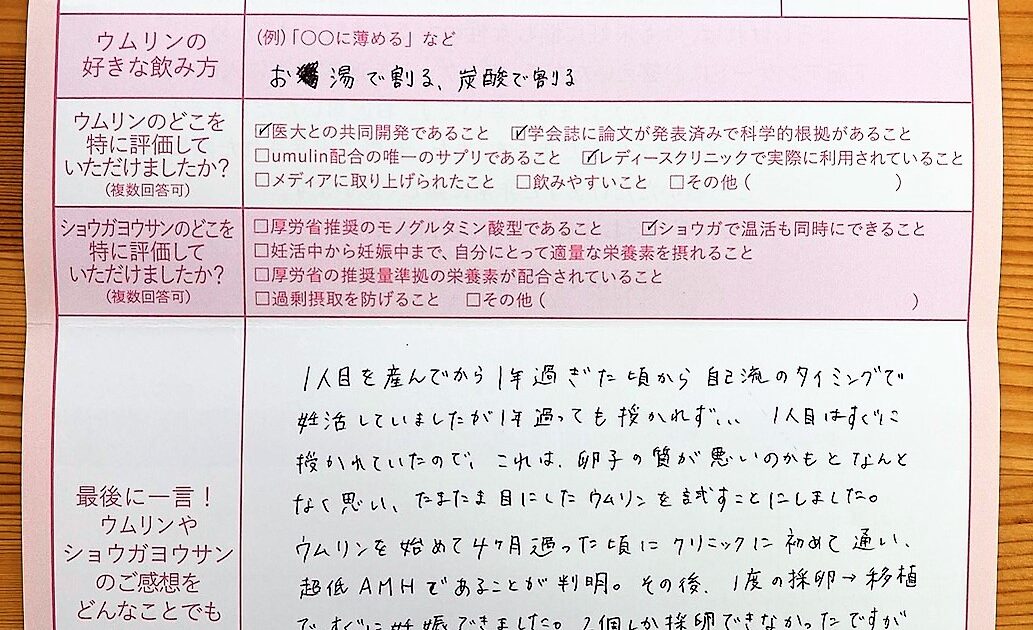 ウムリンの
好きな飲み方
（例）「〇〇に薄める」など
お湯で割る、炭酸で割る
ウムリンのどこを
特に評価して
いただけましたか？
（複数回答可）
☑医大との共同開発であること ☑学会誌に論文が発表済みで科学的根拠があること
□umulin配合の唯一のサプリであること ☑レディースクリニックで実際に利用されていること
□メディアに取り上げられたこと □飲みやすいこと □その他（ ）
ショウガヨウサンのどこを
特に評価して
いただけましたか？
（複数回答可）
□厚労省推奨のモノグルタミン酸型であること ☑ショウガで温活も同時にできること
□妊活中から妊娠中まで、自分にとって適量な栄養素を摂れること
□厚労省の推奨量準拠の栄養素が配合されていること
□過剰摂取を防げること □その他（ ）
最後に一言！
ウムリンや
ショウガヨウサン
のご感想を
どんなことでも
1人目を産んでから1年過ぎた頃から自己流のタイミングで
妊活していましたが1年過っても授かれず... 1人目はすぐに
授かれていたので、これは、卵子の質が悪いのかもとなんと
なく思い、たまたま目にしたウムリンを試すことにしました。
ウムリンを始めて4ヶ月過った頃にクリニックに初めて通い、
超低AMHであることが判明。その後、1度の採卵→移植
ですぐに妊娠できました。2個しか採卵できなかったですが